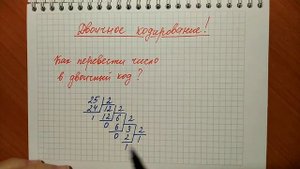 Двоичное кодирование!
Как перевести число
в двоичный код?
25 | 2
24 | 12 | 2
1 | 12 | 6 | 2
0 | 6 | 3 | 2
0 | 2 | 1
1